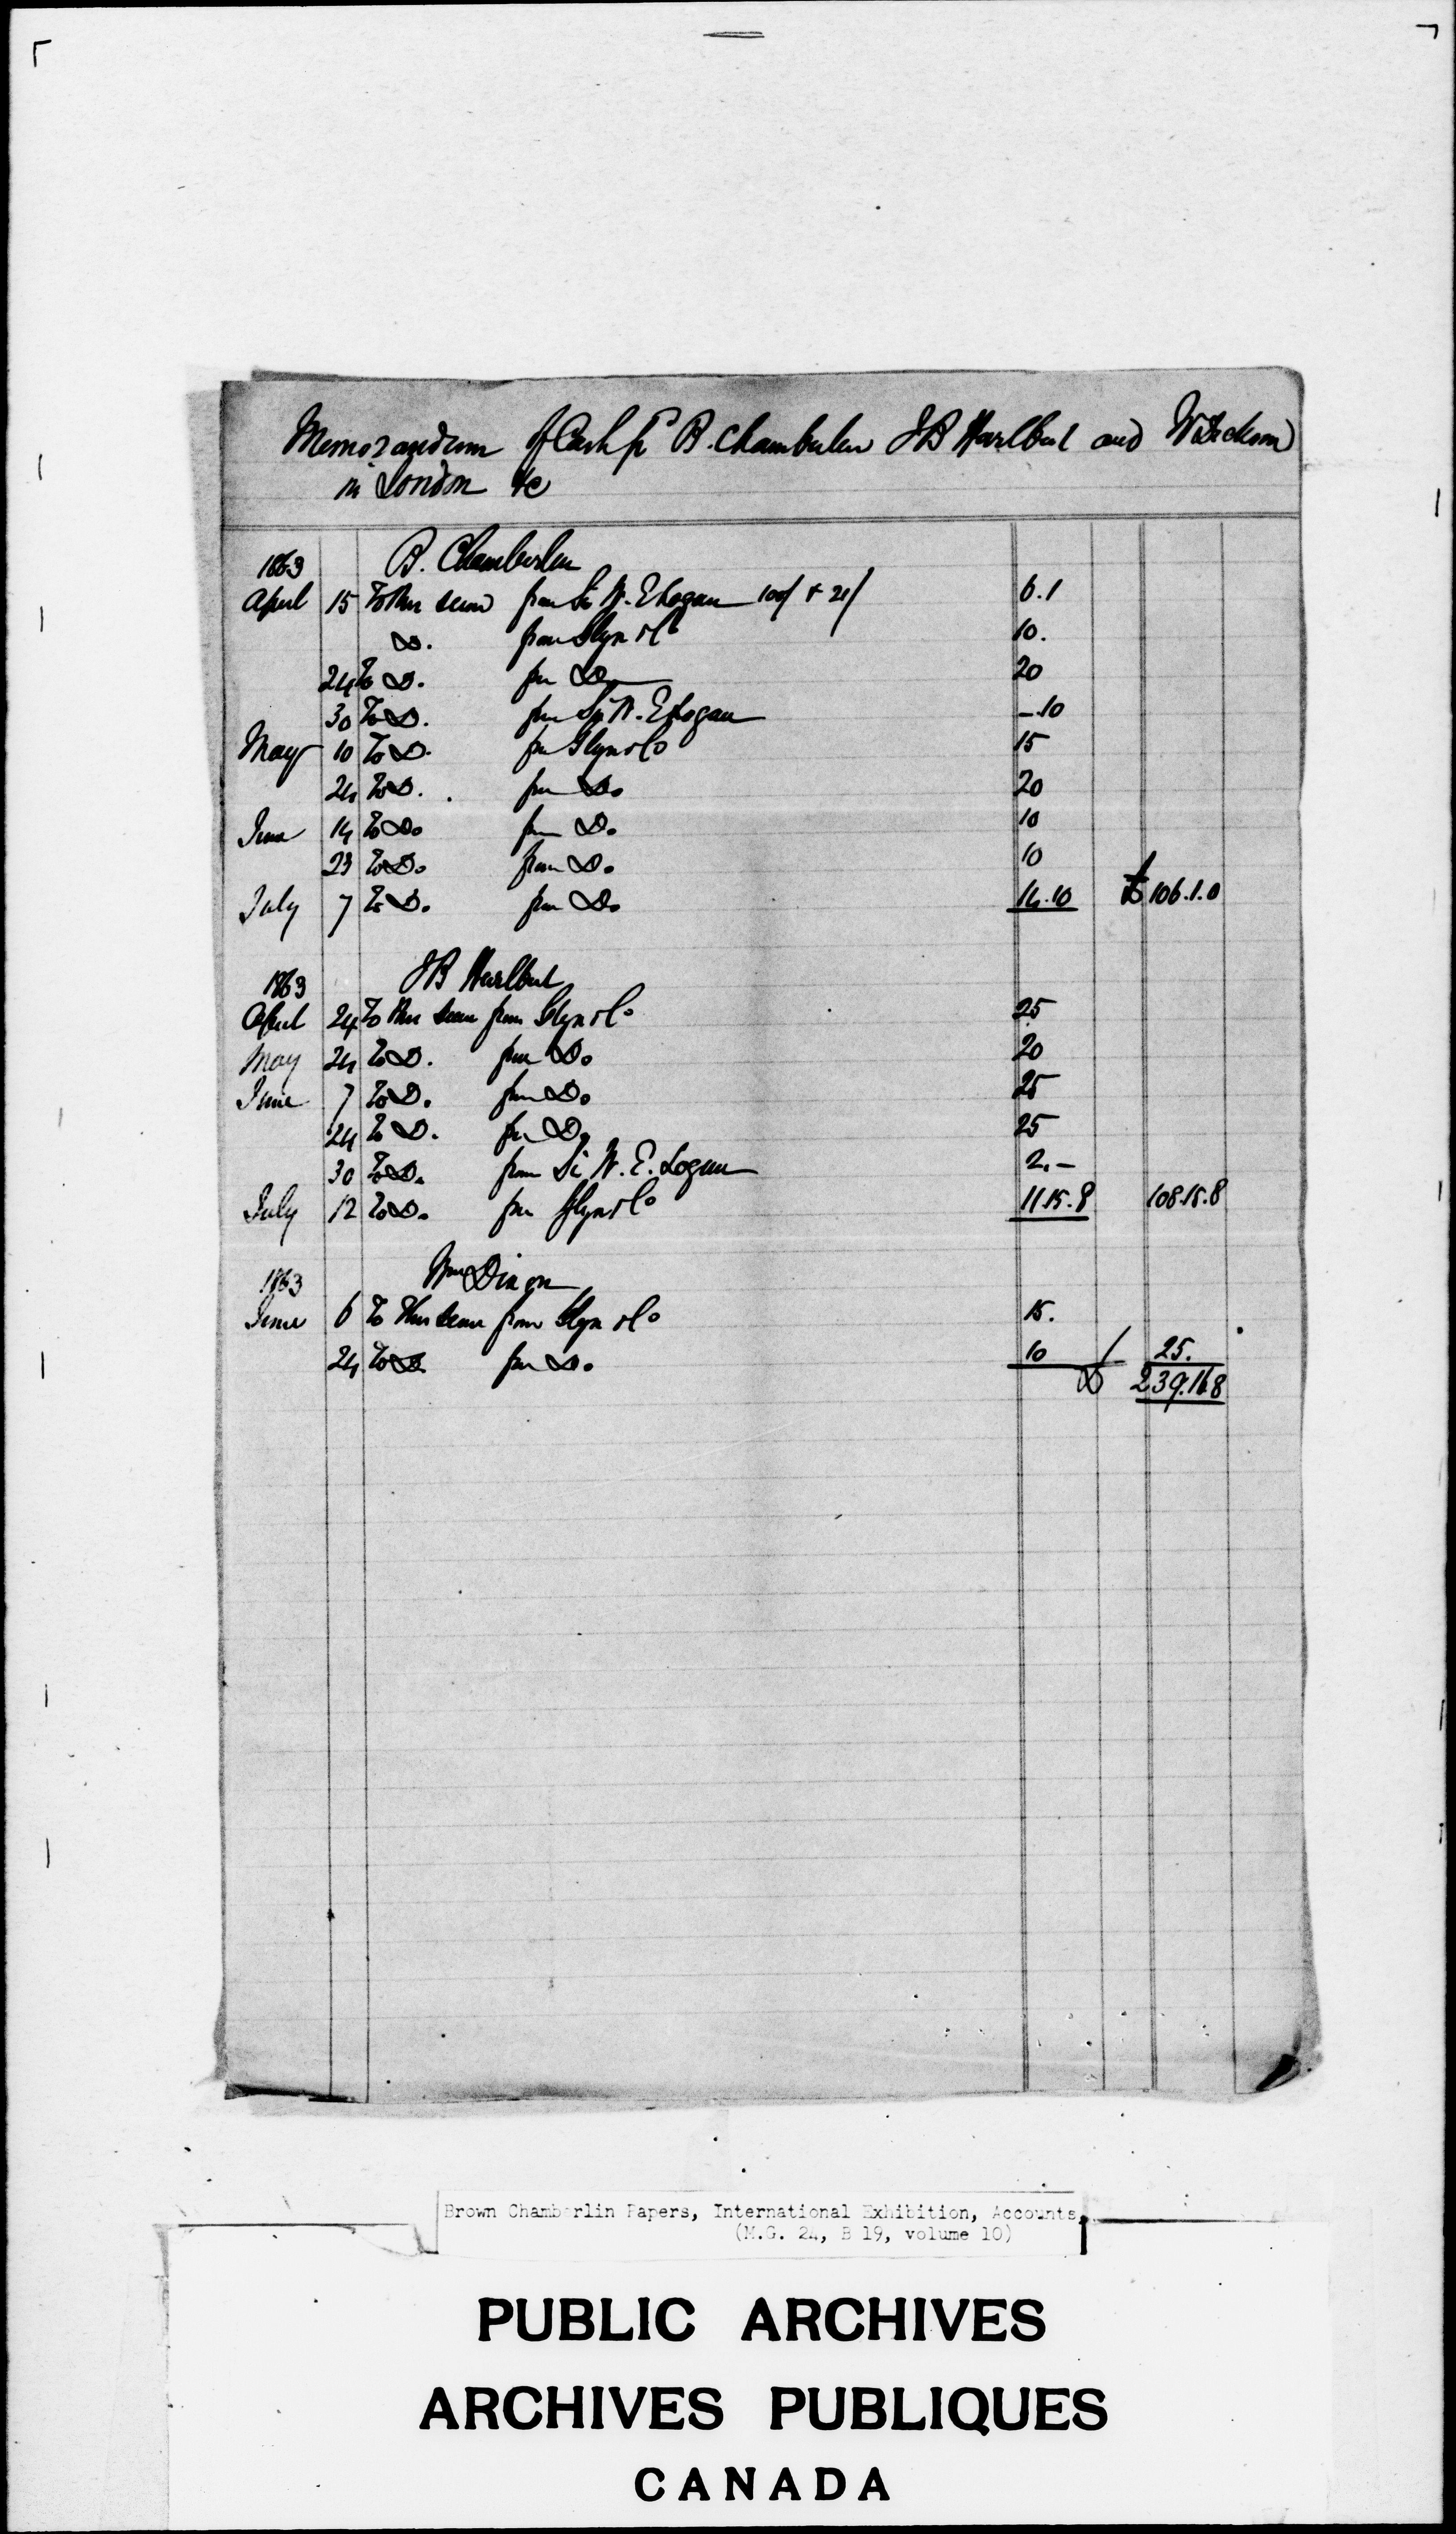 Memorandum of Cash pr B. Chamberlin J B Hurlburt and W Dickson
in London &c
1863 B. Chamberlin
April 15 To this sum from Sir W. E Logan 100/ + 21/ 6.1
Do. from Glyn & Co 10.
24 To Do. from Do 20
30 To Do. from Sir W. E Logan -.10
May 10 To Do. from Glyn & Co 15
24 To Do. from Do 20
June 14 To Do from Do. 10
23 To Do. from Do. 10
July 7 To Do. from Do 14.10 £ 106.1.0
1863 J B Hurlburt
April 24 To this sum from Glyn & Co 25
May 24 To Do. from Do 20
June 7 To Do. from Do 25
24 To Do. from Do 25
30 To Do. from Sir W. E. Logan 2.-
July 12 To Do. from Glyn & Co 11.15.8 108.15.8
1863 Wm Dixon
June 6 To this sum from Glyn & Co 15.
24 To Do from Do. 10 25.
£ 239.16.8
Brown Chamberlin Papers, International Exhibition, Accounts,
(M.G. 24, B 19, volume 10)
PUBLIC ARCHIVES
ARCHIVES PUBLIQUES
CANADA